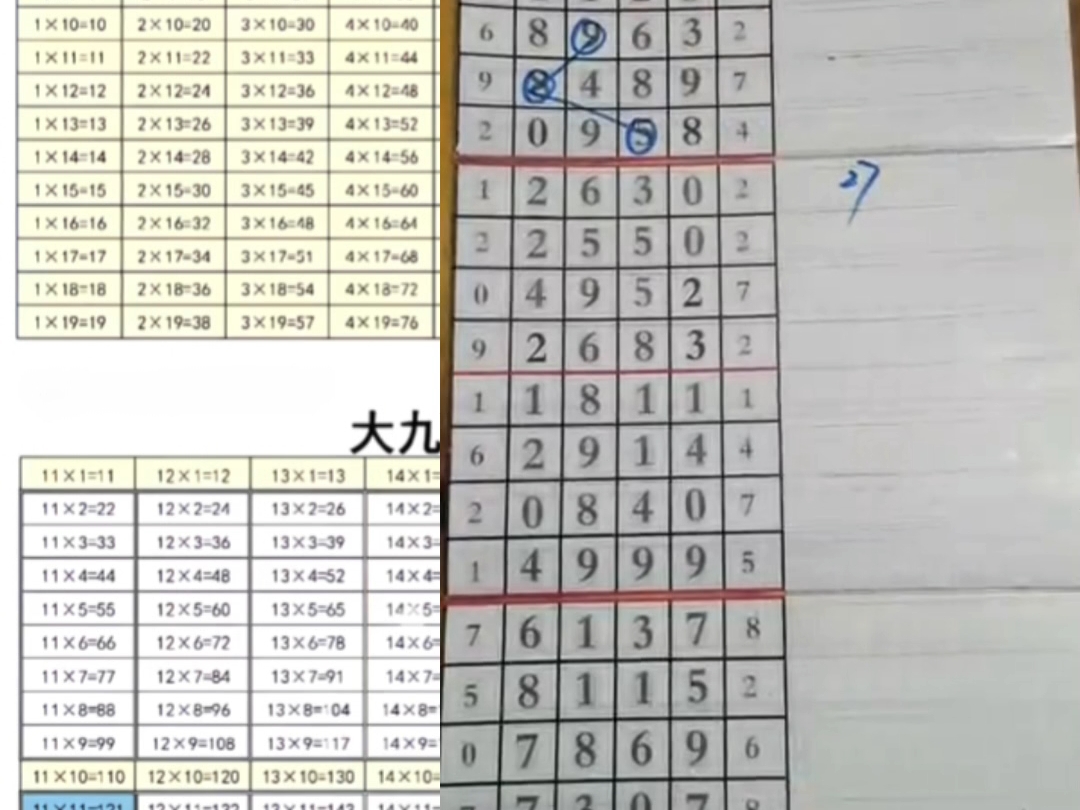 1×10=10 2×10=20 3×10=30 4×10=40
1×11=11 2×11=22 3×11=33 4×11=44
1×12=12 2×12=24 3×12=36 4×12=48
1×13=13 2×13=26 3×13=39 4×13=52
1×14=14 2×14=28 3×14=42 4×14=56
1×15=15 2×15=30 3×15=45 4×15=60
1×16=16 2×16=32 3×16=48 4×16=64
1×17=17 2×17=34 3×17=51 4×17=68
1×18=18 2×18=36 3×18=54 4×18=72
1×19=19 2×19=38 3×19=57 4×19=76
大九
11×1=11 12×1=12 13×1=13 14×1=
11×2=22 12×2=24 13×2=26 14×2=
11×3=33 12×3=36 13×3=39 14×3=
11×4=44 12×4=48 13×4=52 14×4=
11×5=55 12×5=60 13×5=65 14×5=
11×6=66 12×6=72 13×6=78 14×6=
11×7=77 12×7=84 13×7=91 14×7=
11×8=88 12×8=96 13×8=104 14×8=
11×9=99 12×9=108 13×9=117 14×9=
11×10=110 12×10=120 13×10=130 14×10=
6 8 9 6 3 2
9 8 4 8 9 7
2 0 9 5 8 4
1 2 6 3 0 2
2 2 5 5 0 2
0 4 9 5 2 7
9 2 6 8 3 2
1 1 8 1 1 1
6 2 9 1 4 4
2 0 8 4 0 7
1 4 9 9 9 5
7 6 1 3 7 8
5 8 1 1 5 2
0 7 8 6 9 6
27